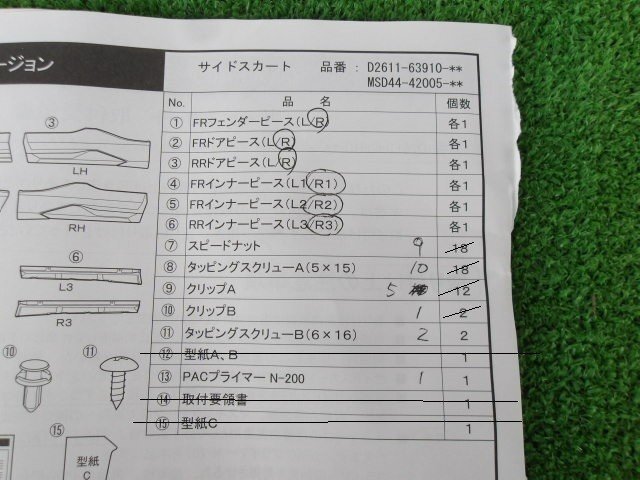 ージョン
サイドスカート 品番 : D2611-63910-**
MSD44-42005-**
No. 品 名 個数
① FRフェンダーピース(L/R) 各1
② FRドアピース(L/R) 各1
③ RRドアピース(L/R) 各1
④ FRインナーピース(L1/R1) 各1
⑤ FRインナーピース(L2/R2) 各1
⑥ RRインナーピース(L3/R3) 各1
⑦ スピードナット 9 18
⑧ タッピングスクリューA(5×15) 10 18
⑨ クリップA 5 12
⑩ クリップB 1 2
⑪ タッピングスクリューB(6×16) 2 2
⑫ 型紙A、B 1
⑬ PACプライマー N-200 1 1
⑭ 取付要領書 1
⑮ 型紙C 1
③
LH
RH
⑥
L3
R3
⑩ ⑪
⑮
型紙
C